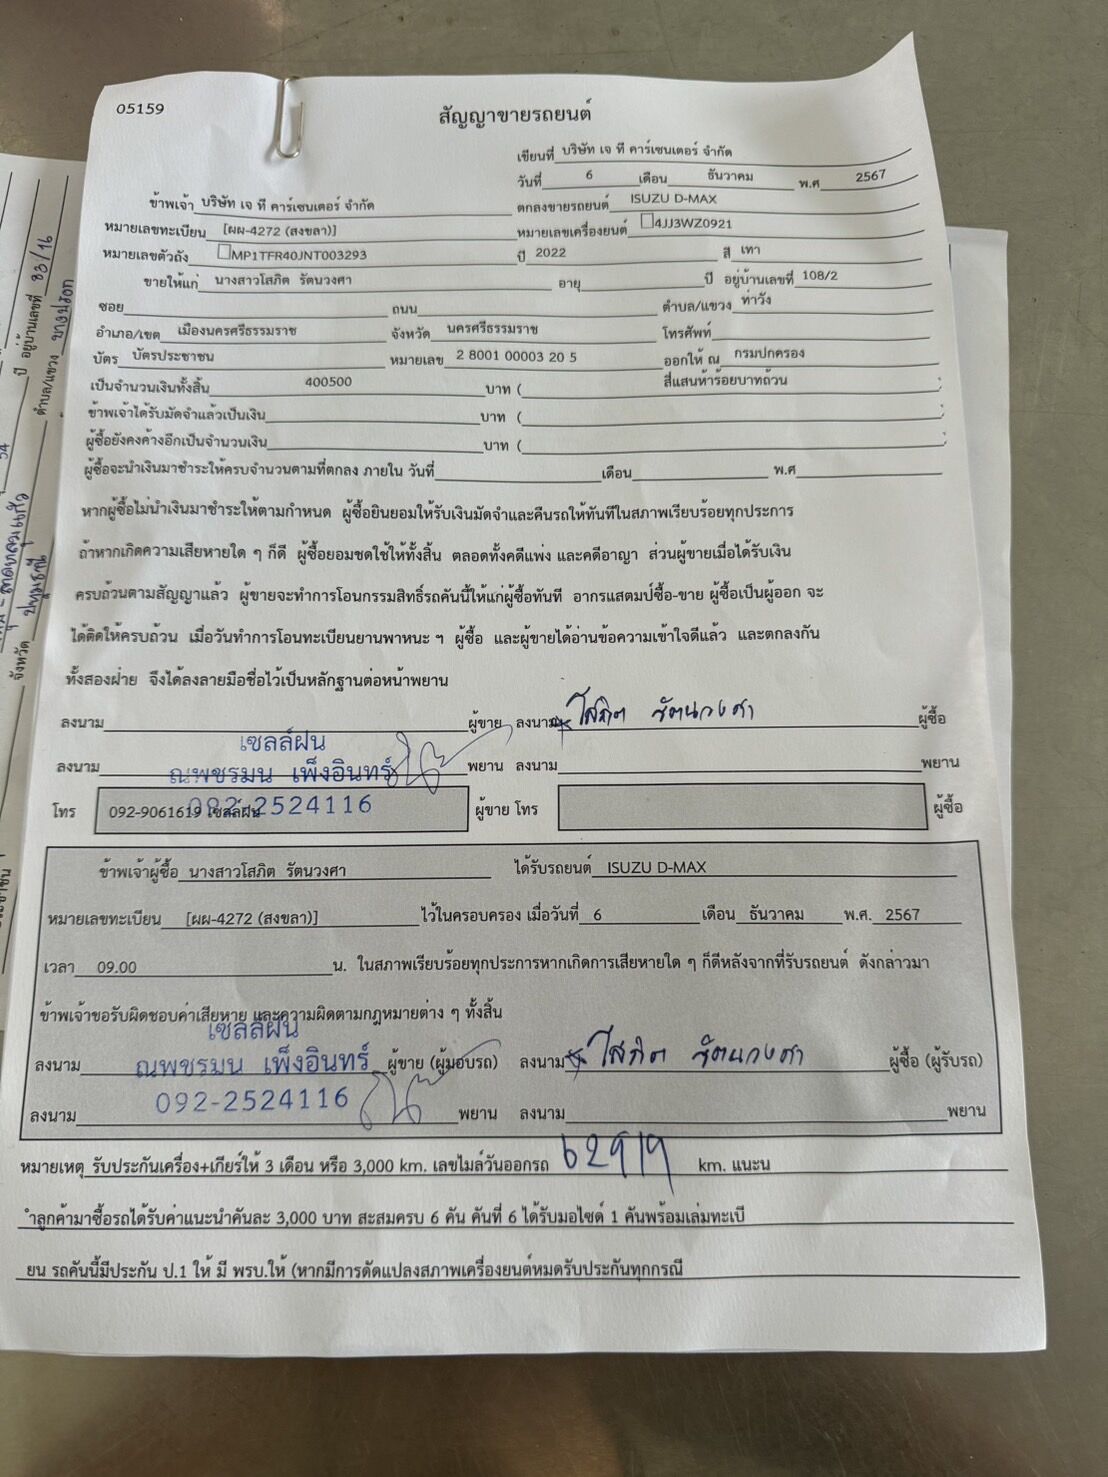 05159
สัญญาขายรถยนต์
เขียนที่ บริษัท เจ ที คาร์เซนเตอร์ จำกัด
วันที่ 6 เดือน ธันวาคม พ.ศ 2567
ข้าพเจ้า บริษัท เจ ที คาร์เซนเตอร์ จำกัด ตกลงขายรถยนต์ ISUZU D-MAX
หมายเลขทะเบียน [ผผ-4272 (สงขลา)] หมายเลขเครื่องยนต์ 4JJ3WZ0921
หมายเลขตัวถัง MP1TFR40JNT003293 ปี 2022 สี เทา
ขายให้แก่ นางสาวโสภิต รัตนวงศา อายุ ปี อยู่บ้านเลขที่ 108/2
ซอย ถนน ตำบล/แขวง ท่าวัง
อำเภอ/เขต เมืองนครศรีธรรมราช จังหวัด นครศรีธรรมราช โทรศัพท์
บัตร บัตรประชาชน หมายเลข 2 8001 00003 20 5 ออกให้ ณ กรมปกครอง
เป็นจำนวนเงินทั้งสิ้น 400500 บาท ( สี่แสนห้าร้อยบาทถ้วน )
ข้าพเจ้าได้รับมัดจำแล้วเป็นเงิน บาท ( )
ผู้ซื้อยังคงค้างอีกเป็นจำนวนเงิน บาท ( )
ผู้ซื้อจะนำเงินมาชำระให้ครบจำนวนตามที่ตกลง ภายใน วันที่ เดือน พ.ศ
หากผู้ซื้อไม่นำเงินมาชำระให้ตามกำหนด ผู้ซื้อยินยอมให้รับเงินมัดจำและคืนรถให้ทันทีในสภาพเรียบร้อยทุกประการ
ถ้าหากเกิดความเสียหายใด ๆ ก็ดี ผู้ซื้อยอมชดใช้ให้ทั้งสิ้น ตลอดทั้งคดีแพ่ง และคดีอาญา ส่วนผู้ขายเมื่อได้รับเงิน
ครบถ้วนตามสัญญาแล้ว ผู้ขายจะทำการโอนกรรมสิทธิ์รถคันนี้ให้แก่ผู้ซื้อทันที อากรแสตมป์ซื้อ-ขาย ผู้ซื้อเป็นผู้ออก จะ
ได้ติดให้ครบถ้วน เมื่อวันทำการโอนทะเบียนยานพาหนะ ฯ ผู้ซื้อ และผู้ขายได้อ่านข้อความเข้าใจดีแล้ว และตกลงกัน
ทั้งสองฝ่าย จึงได้ลงลายมือชื่อไว้เป็นหลักฐานต่อหน้าพยาน
ลงนาม ผู้ขาย ลงนาม โสภิต รัตนวงศา ผู้ซื้อ
เซลล์ฝน
ลงนาม ณพชรมน เพ็งอินทร์ พยาน ลงนาม พยาน
092-2524116
โทร 092-9061619 เซลล์ฝน ผู้ขาย โทร ผู้ซื้อ
ข้าพเจ้าผู้ซื้อ นางสาวโสภิต รัตนวงศา ได้รับรถยนต์ ISUZU D-MAX
หมายเลขทะเบียน [ผผ-4272 (สงขลา)] ไว้ในครอบครอง เมื่อวันที่ 6 เดือน ธันวาคม พ.ศ. 2567
เวลา 09.00 น. ในสภาพเรียบร้อยทุกประการหากเกิดการเสียหายใด ๆ ก็ดีหลังจากที่รับรถยนต์ ดังกล่าวมา
ข้าพเจ้าขอรับผิดชอบค่าเสียหาย และความผิดตามกฎหมายต่าง ๆ ทั้งสิ้น
เซลล์ฝน
ลงนาม ณพชรมน เพ็งอินทร์ ผู้ขาย (ผู้มอบรถ) ลงนาม โสภิต รัตนวงศา ผู้ซื้อ (ผู้รับรถ)
092-2524116
ลงนาม พยาน ลงนาม พยาน
หมายเหตุ รับประกันเครื่อง+เกียร์ให้ 3 เดือน หรือ 3,000 km. เลขไมล์วันออกรถ km. แนะน
ำลูกค้ามาซื้อรถได้รับค่าแนะนำคันละ 3,000 บาท สะสมครบ 6 คัน คันที่ 6 ได้รับมอไซด์ 1 คันพร้อมเล่มทะเบี
ยน รถคันนี้มีประกัน ป.1 ให้ มี พรบ.ให้ (หากมีการดัดแปลงสภาพเครื่องยนต์หมดรับประกันทุกกรณี
ปี อยู่บ้านเลขที่ 33/16
ตำบล/แขวง
จังหวัด ปทุมธานี